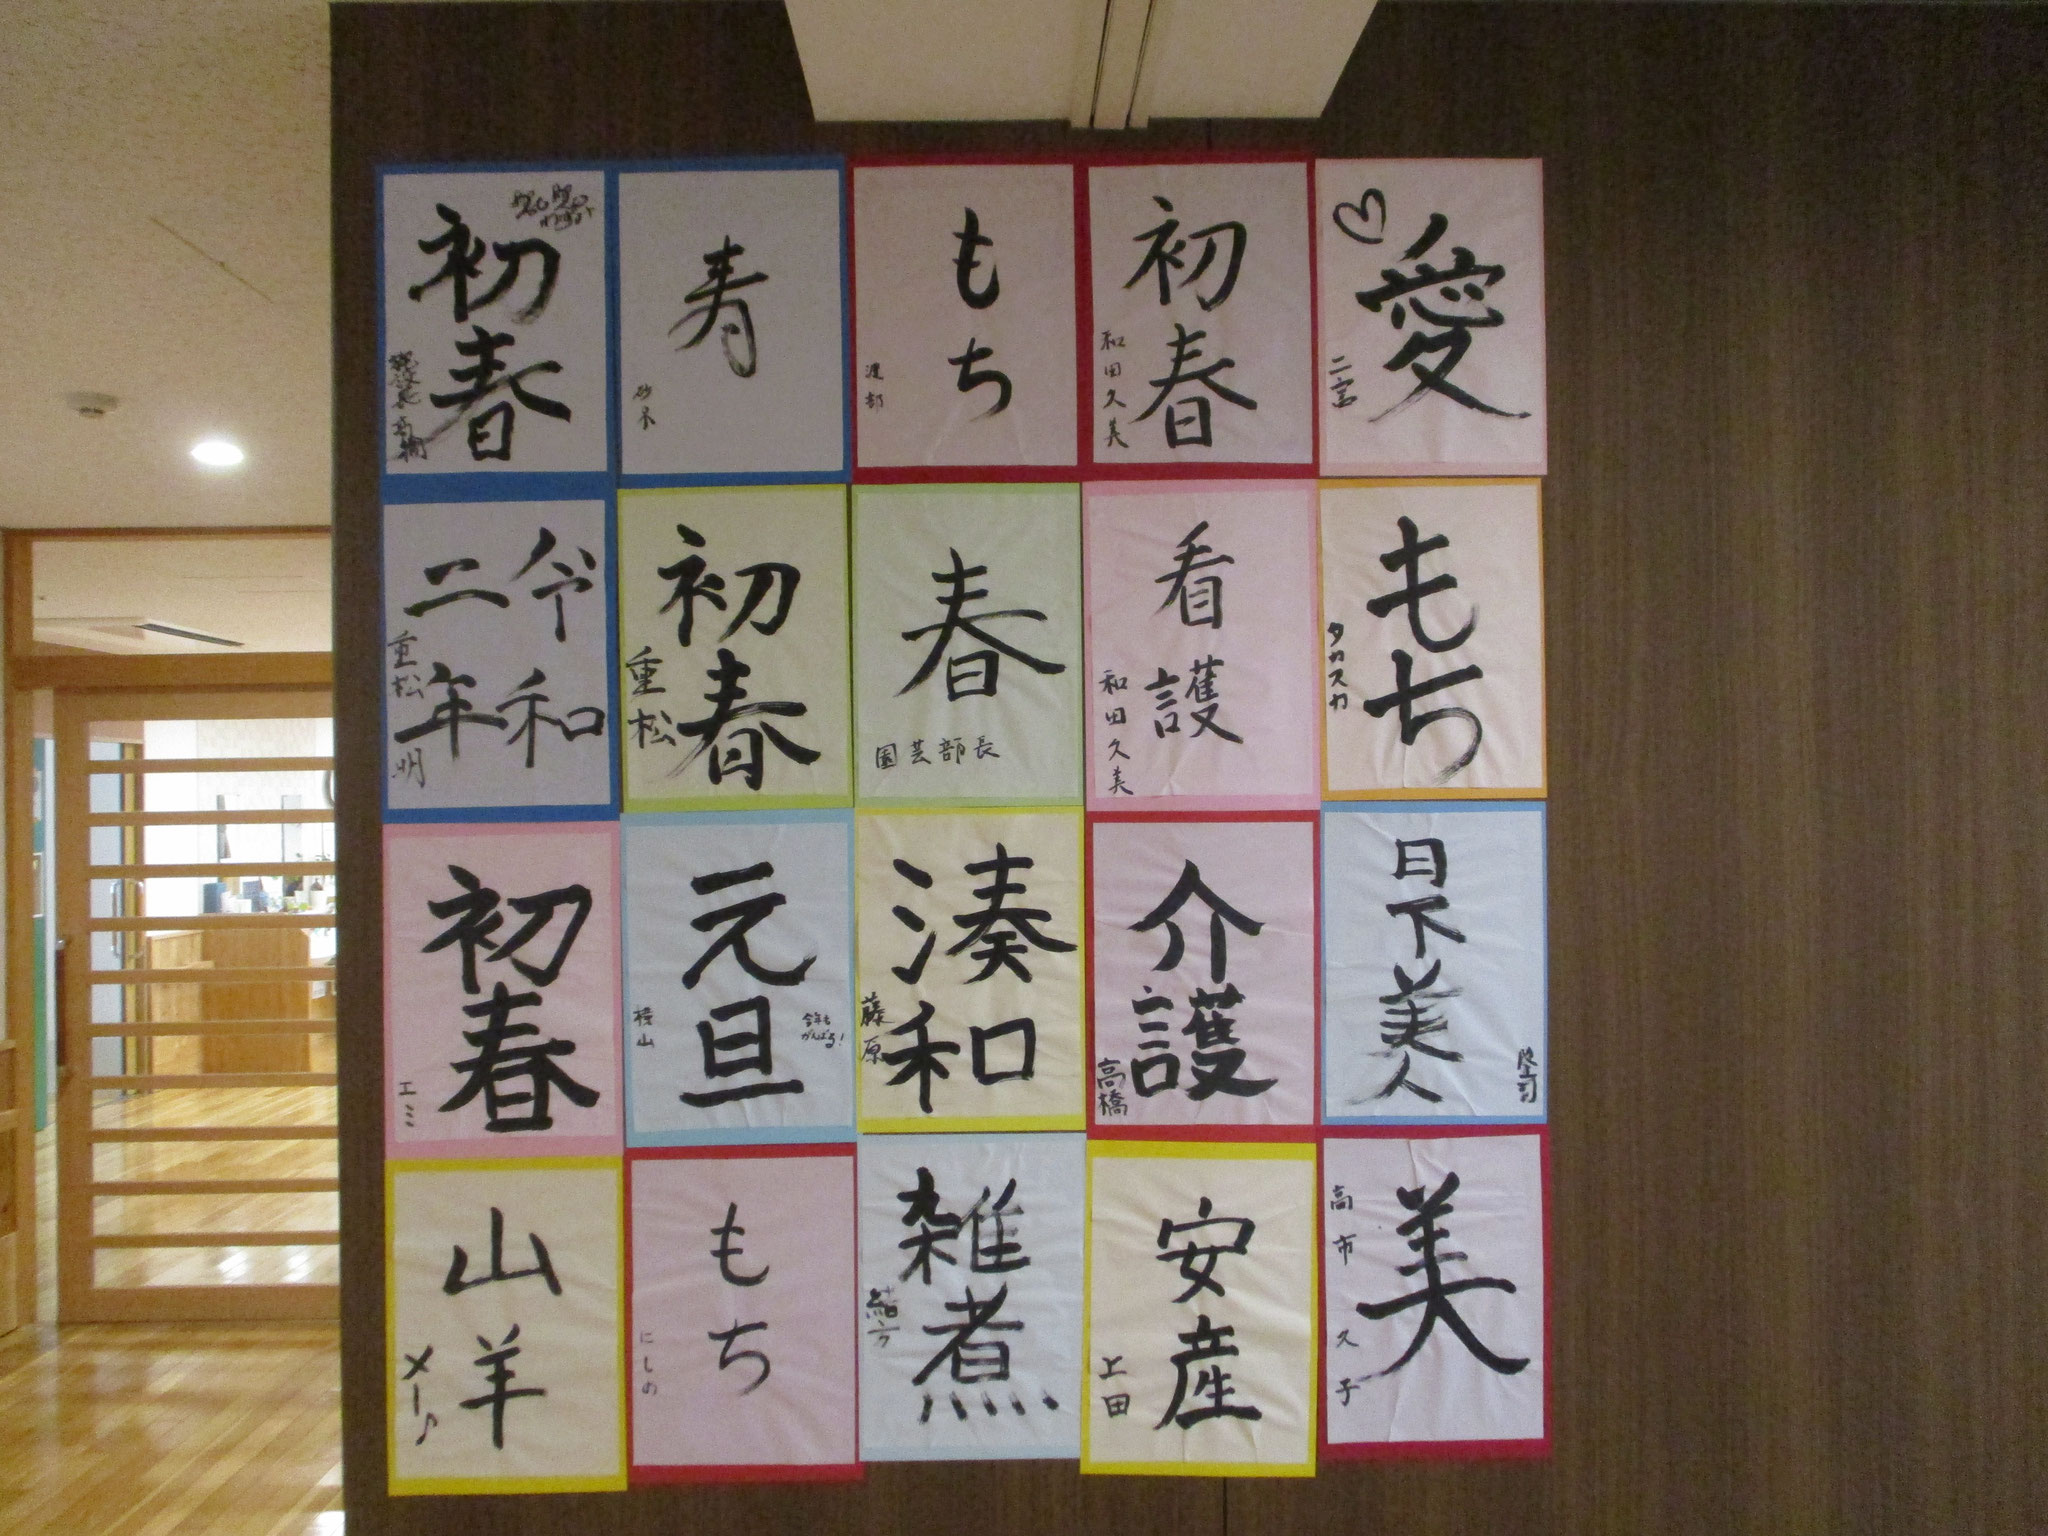 初春
寿
もち
渡部
初春
和田久美
愛
二宮
令和
二年
重松
明
初春
重松
春
園芸部長
看護
和田久美
もち
タカスカ
初春
エミ
元旦
横山
今年も
がんばる!
湊和
藤原
介護
高橋
日下美人
隆司
山羊
メー♪
もち
にしの
雑煮
緒方
安産
上田
美
高市久子